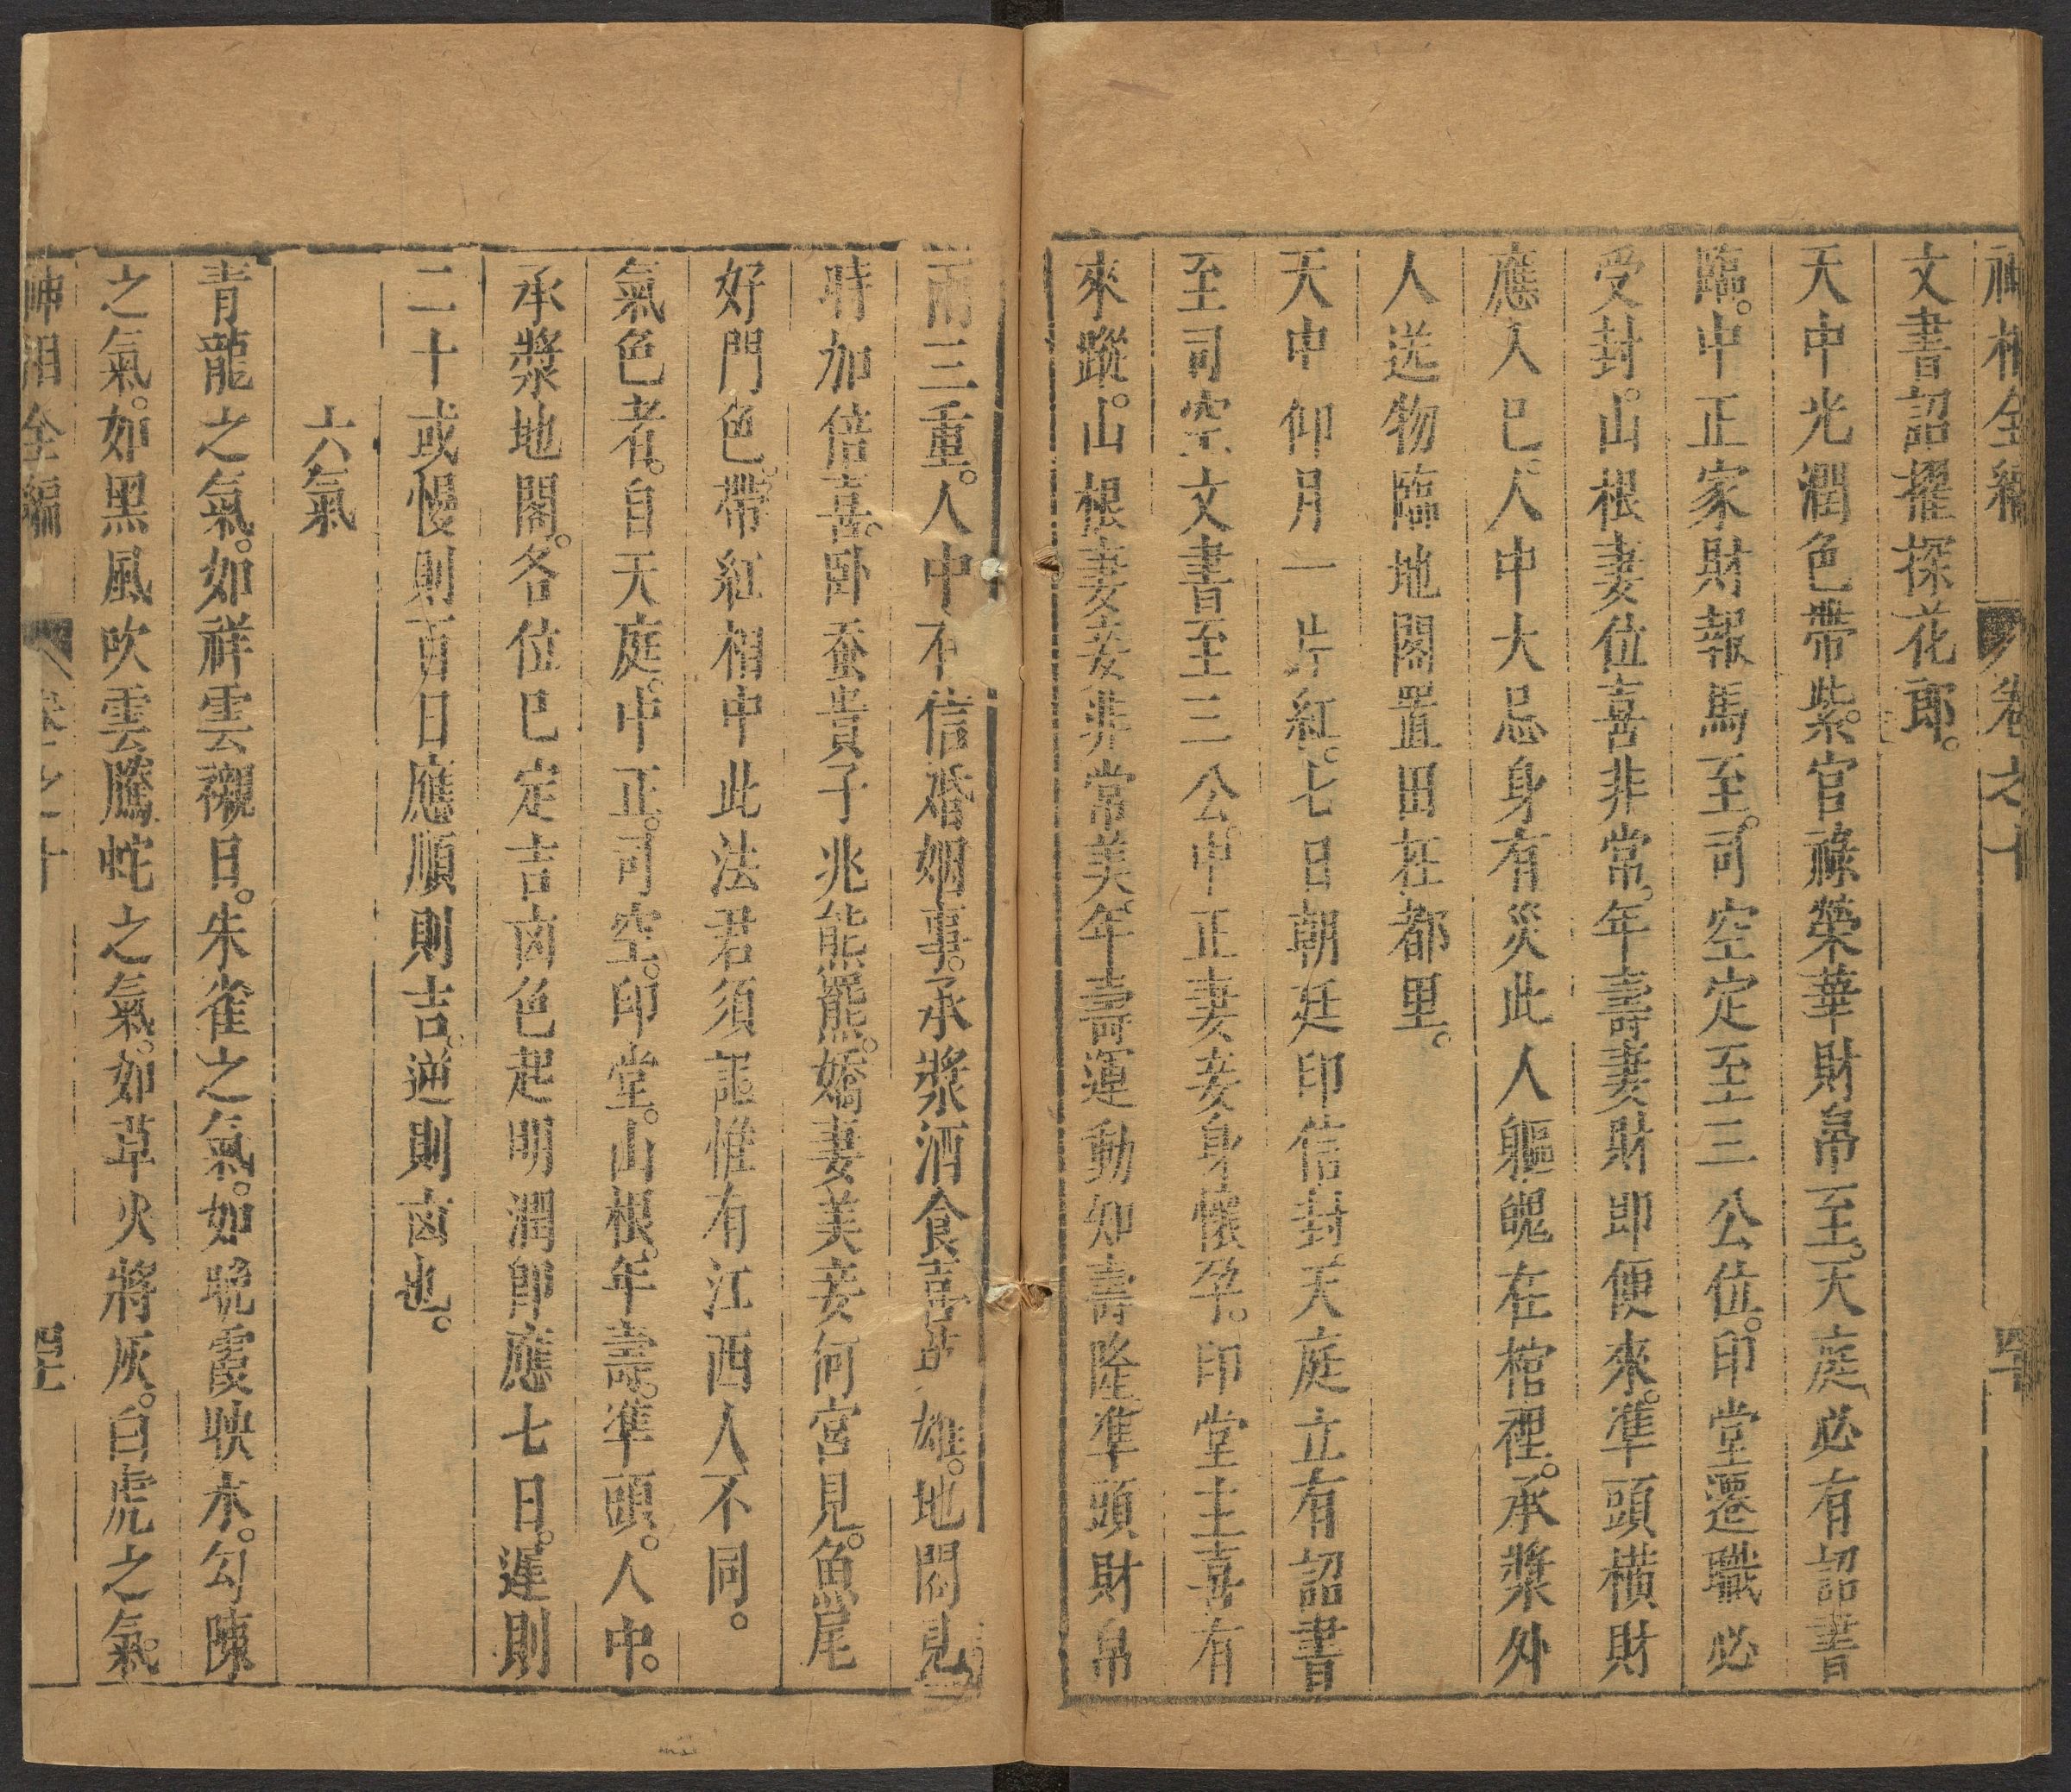 神相全編 卷之十 四十
文書詔擢探花郎。
天中光潤色帶紫。官祿榮華財帛至。天庭必有詔書
臨。中正家財報馬至。司空定至三公位。印堂遷職必
受封。山根妻位喜非常。年壽妻財即便來。準頭橫財
應入巳。人中大忌身有災此人軀魄在棺裡。承漿外
人送物臨地閣置田在都里。
天中仰月一片紅。七日朝廷印信封天庭立有詔書
至司空文書至三公。中正妻妾身懷孕。印堂主喜有
來蹤。山根妻妾非常美。年壽運動知壽隆。準頭財帛
兩三重。人中不信婚姻事。承漿酒食喜 雄。地閣見
時加倍喜。卧蚕貴子兆熊羆。嬌妻美妾何宮見。魚尾
好門色帶紅相中此法君須記惟有江西人不同。
氣色者。自天庭。中正。司空。印堂。山根。年壽。準頭。人中。
承漿地閣。各位巳定吉㐫色起明潤卽應七日。遲則
二十或慢則百日應順則吉。逆則㐫也。
六氣
青龍之氣。如祥雲襯日。朱雀之氣。如晩霞映水。勾陳
之氣。如黑風吹雲騰蛇之氣。如草火將灰。白虎之氣。
神相全編 卷之十